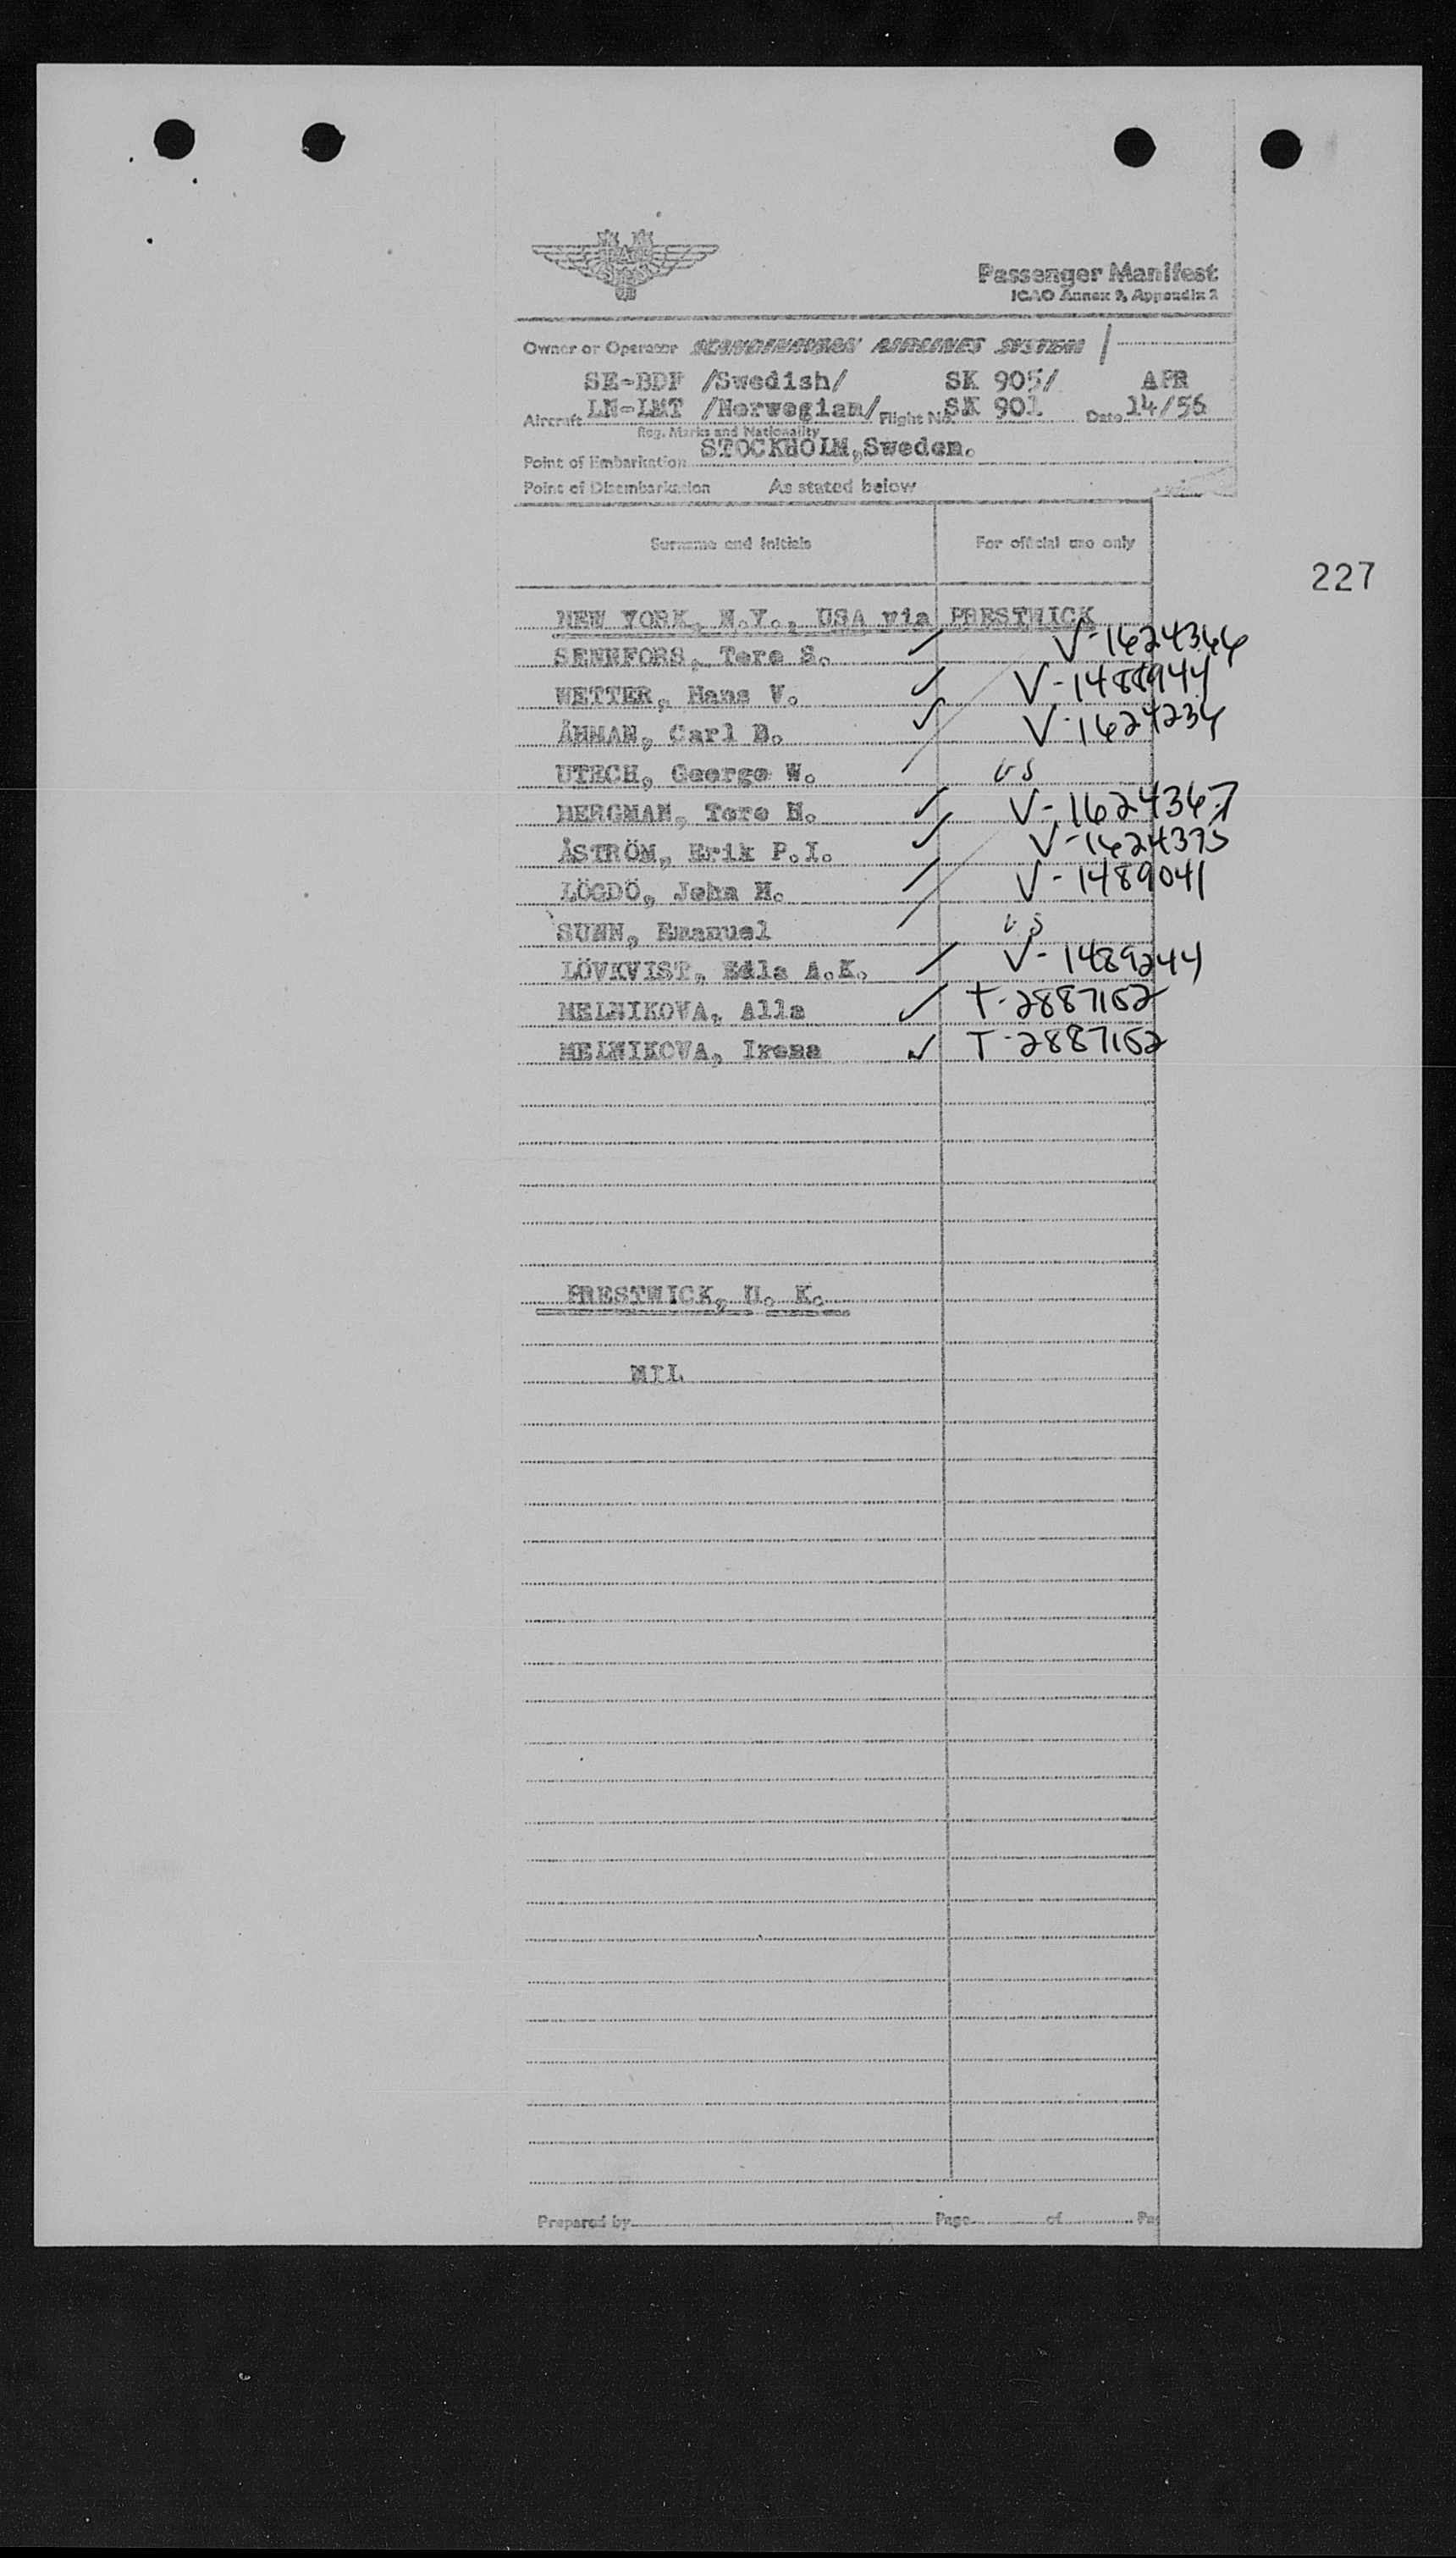 Passenger Manifest
ICAO Annex 9, Appendix 2
Owner or Operator SCANDINAVIAN AIRLINES SYSTEM
SE-BDP /Swedish/ SK 905/ APR
Aircraft LN-LMT /Norwegian/ Flight No. SK 901 Date 14/56
Reg. Marks and Nationality
Point of Embarkation STOCKHOLM,Sweden.
Point of Disembarkation As stated below
Surname and Initials For official use only
227
NEW YORK, N.Y., USA via PRESTWICK
SENNFORS, Tore S. ✓ V-1624366
WETTER, Hans V. ✓ V-1488944
ÅHMAN, Carl B. ✓ V-1624234
UTECH, George W. US
BERGMAN, Tore N. ✓ V-1624367
ÅSTRÖM, Erik P.I. ✓ V-1624375
LÖGDÖ, John H. ✓ V-1489041
SUNN, Emanuel US
LÖVKVIST, Edla A.K. ✓ V-1489244
MELNIKOVA, Alla ✓ T-2887152
MELNIKOVA, Irena ✓ T-2887152
PRESTWICK, U. K.
NIL
Prepared by Page of